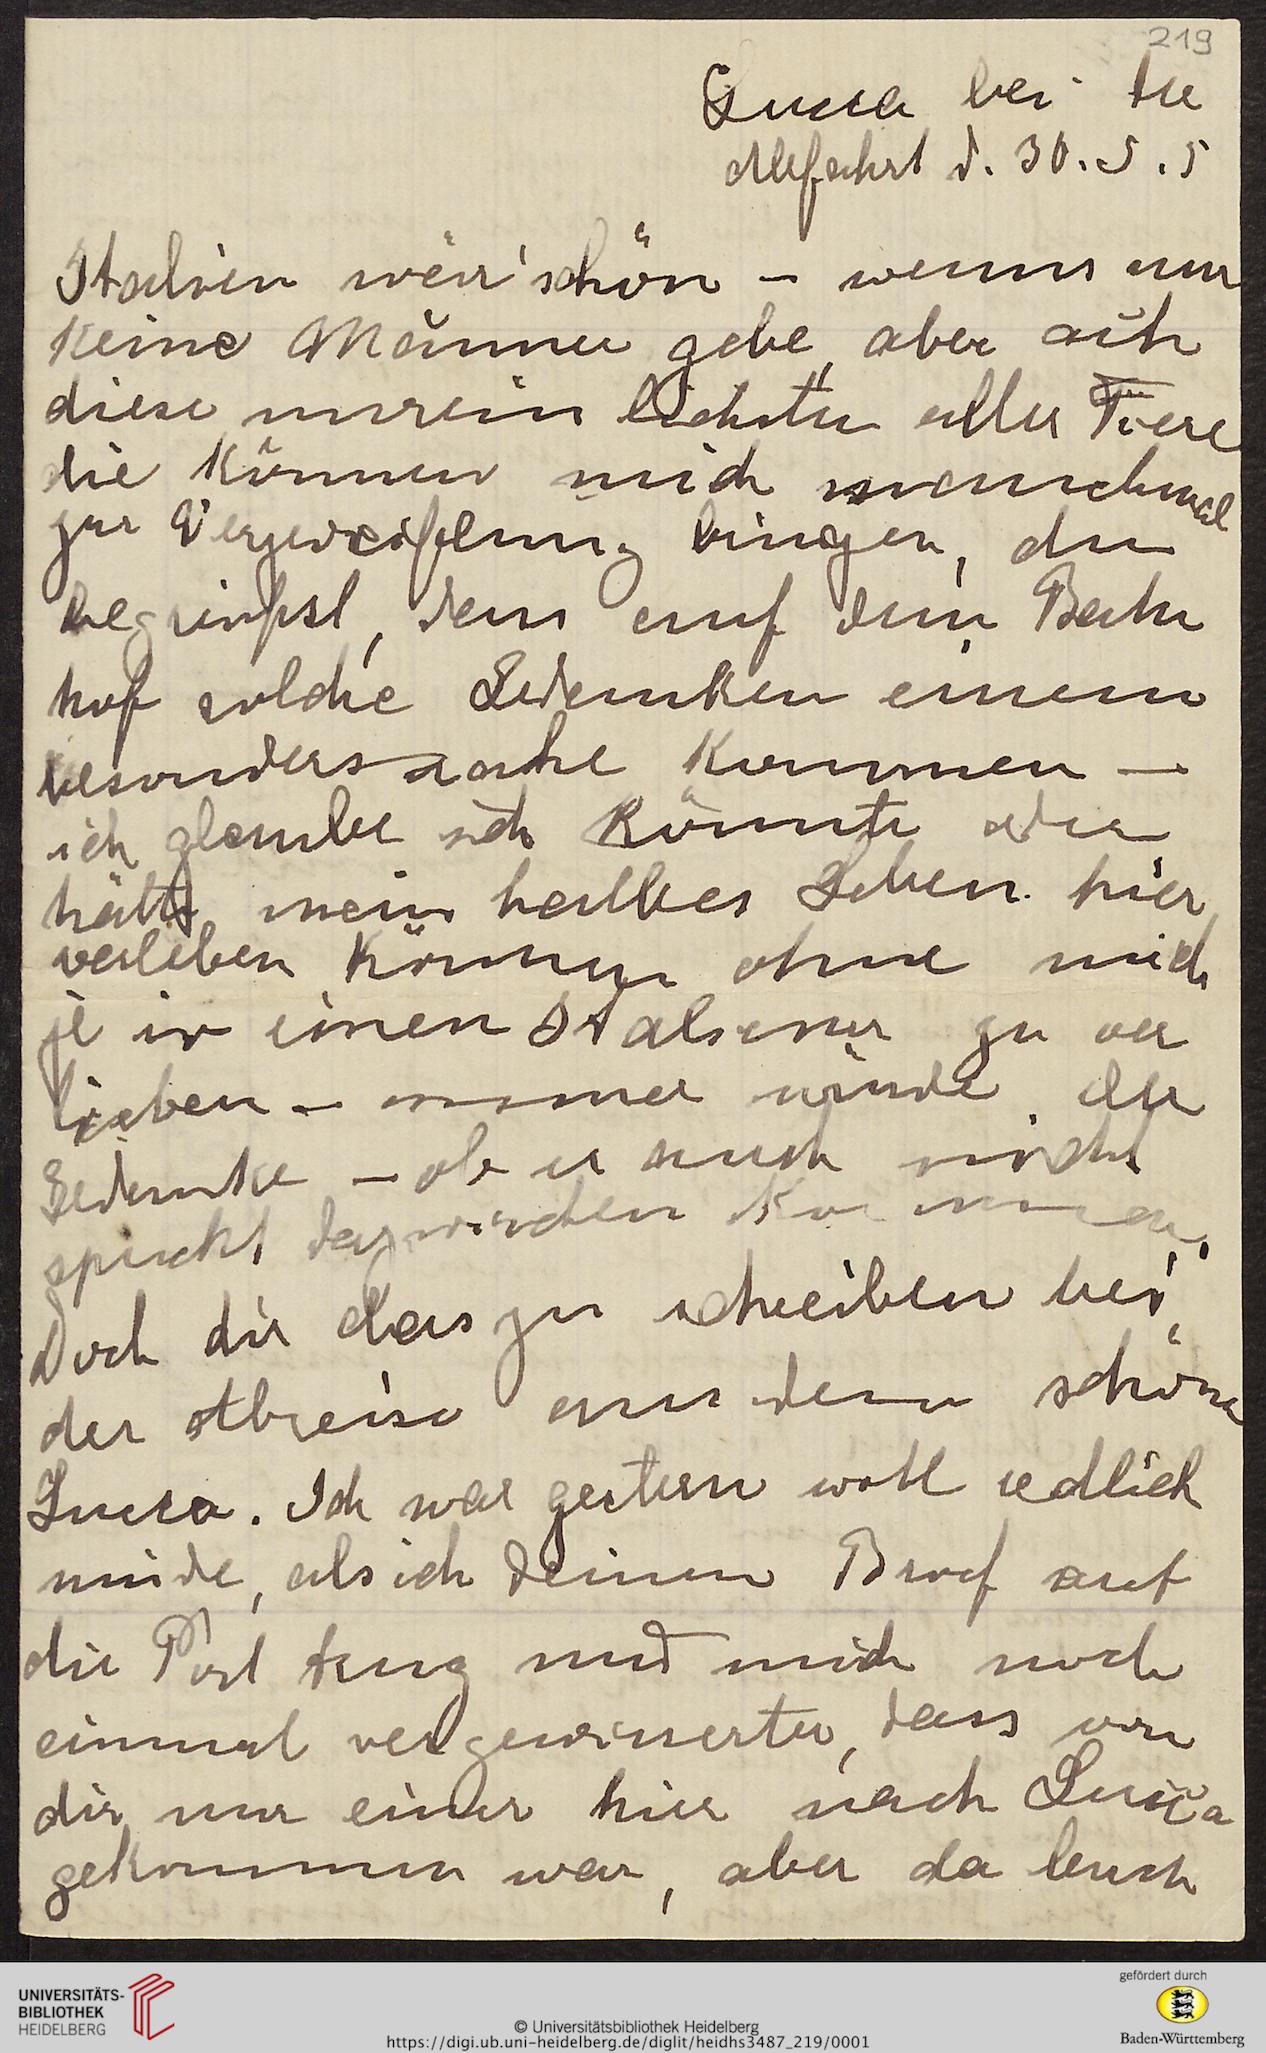 219
Lucca bei der
Abfahrt d. 30.5.5
Italien wär' schön – wenns nur
keine Männer gebe, aber ach
diese unreinlichsten aller Tiere
die können mich manchmal
zur Verzweiflung bringen, du
begreifst, dass auf dem Bahn
hof solche Gedanken einem
besonders nahe kommen –
ich glaube ich könnte oder
hätte mein halbes Leben hier
verleben können ohne mich
je in einen Italiener zu ver
lieben – immer würde der
Gedanke – ob er auch nicht
spuckt dazwischen kommen.
Doch dir das zu schreiben bei
der Abreise aus dem schönen
Lucca. Ich war gestern wohl redlich
müde, als ich deinen Brief auf
die Post trug und mich noch
einmal vergewisserte, dass von
dir nur einer hier nach Lucca
gekommen war, aber da
UNIVERSITÄTS-
BIBLIOTHEK
HEIDELBERG
© Universitätsbibliothek Heidelberg
https://digi.ub.uni-heidelberg.de/diglit/heidhs3487_219/0001
gefördert durch
Baden-Württemberg